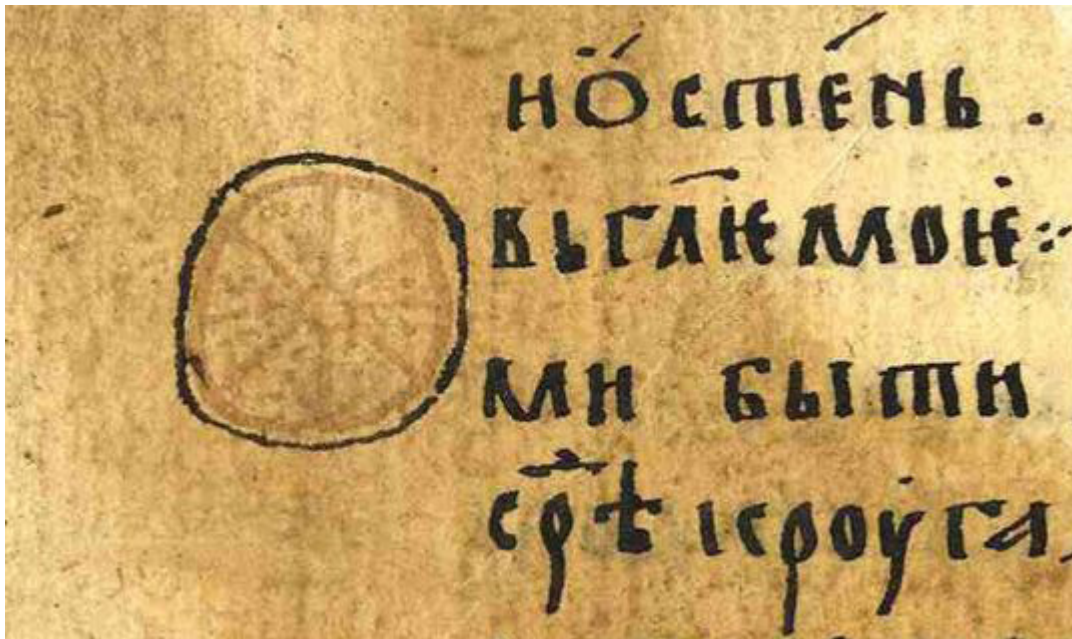 но́сте́нь .
вьгл҃ѥмоѥ :~
ми быти
ср҃ѣ кроуга